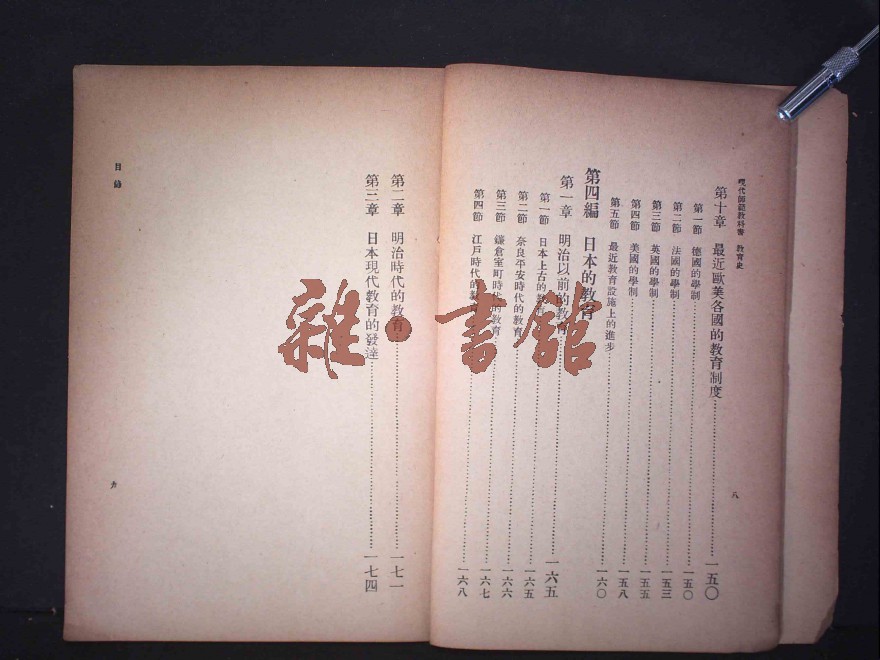 現代師範教科書 教育史
第十章 最近歐美各國的教育制度……一五〇
第一節 德國的學制……一五〇
第二節 法國的學制……一五三
第三節 英國的學制……一五五
第四節 美國的學制……一五八
第五節 最近教育設施上的進步……一六〇
第四編 日本的教育
第一章 明治以前的教育……一六五
第一節 日本上古的教育……一六五
第二節 奈良平安時代的教育……一六六
第三節 鎌倉室町時代的教育……一六七
第四節 江戶時代的教育……一六八
八
目錄
第二章 明治時代的教育……一七一
第三章 日本現代教育的發達……一七四
九
雜·書館